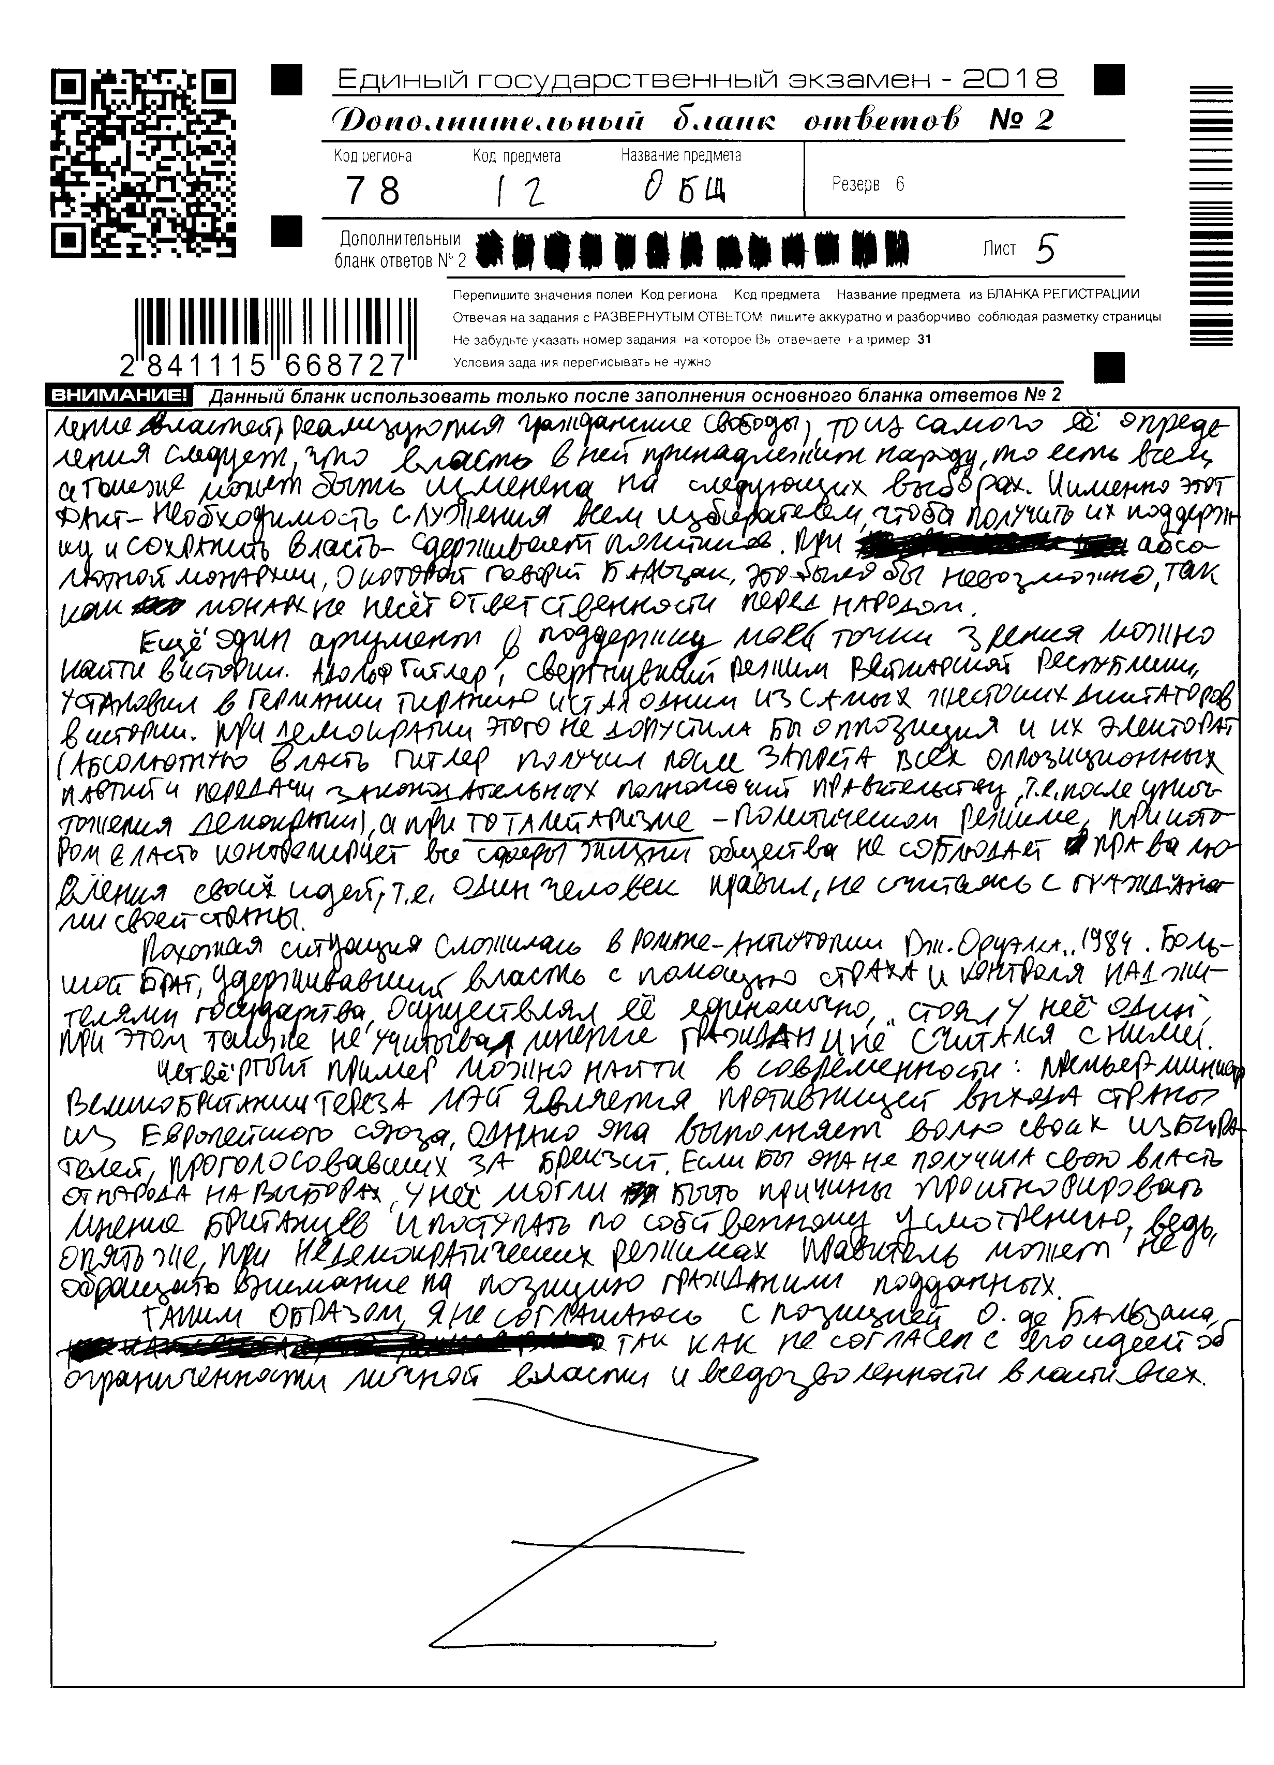 Единый государственный экзамен - 2018
Дополнительный бланк ответов № 2
Код региона Код предмета Название предмета
78 12 ОБЩ Резерв 6
Дополнительный
бланк ответов № 2 Лист 5
Перепишите значения полей Код региона Код предмета Название предмета из БЛАНКА РЕГИСТРАЦИИ
Отвечая на задания с РАЗВЕРНУТЫМ ОТВЕТОМ пишите аккуратно и разборчиво соблюдая разметку страницы
Не забудьте указать номер задания на которое Вы отвечаете например 31
Условия задания переписывать не нужно
2 841115 668727
ВНИМАНИЕ! Данный бланк использовать только после заполнения основного бланка ответов № 2
ление властей, реализуются гражданские свободы), то из самого её опреде-
ления следует, что власть в ней принадлежит народу, то есть всем,
а также может быть изменена на следующих выборах. Именно этот
факт - необходимость служения всем избирателем, чтобы получить их поддерж-
ку и сохранить власть - сдерживает политиков. При абсо-
лютной монархии, о которой говорит Бальзак, это было бы невозможно, так
как монарх не несёт ответственности перед народом.
Ещё один аргумент в поддержку моей точки зрения можно
найти в истории. Адольф Гитлер, свергнувший режим Веймарской Республики,
установил в Германии тиранию и стал одним из самых жестоких диктаторов
в истории. При демократии этого не допустила бы оппозиция и их электорат
(абсолютную власть Гитлер получил после запрета всех оппозиционных
партий и передачи законодательных полномочий правительству, т.е. после унич-
тожения демократии), а при тоталитаризме - политическом режиме, при кото-
ром власть контролирует все сферы жизни общества не соблюдает права
вления своих идей, т.е. один человек правил, не считаясь с граждана-
ми своей страны.
Похожая ситуация сложилась в романе-антиутопии Дж. Оруэлла „1984. Боль-
шой Брат, удерживавший власть с помощью страха и контроля над жи-
телями государства, осуществлял её единолично, „стоял у неё один",
при этом также не учитывая мнение граждан и не считался с ними.
Четвёртый пример можно найти в современности: премьер-министр
Великобритании Тереза Мэй является противницей выхода страны
из Европейского союза, однако она выполняет волю своих избира-
телей, проголосовавших за Брекзит. Если бы она не получила свою власть
от народа на выборах, у неё могли быть причины проигнорировать
мнение британцев и поступать по собственному усмотрению, ведь,
опять же, при недемократических режимах правитель может не
обращать внимание на позицию граждан или подданных.
Таким образом, я не соглашаюсь с позицией О. де Бальзака,
так как не согласен с его идеей об
ограниченности личной власти и вседозволенности власти всех.